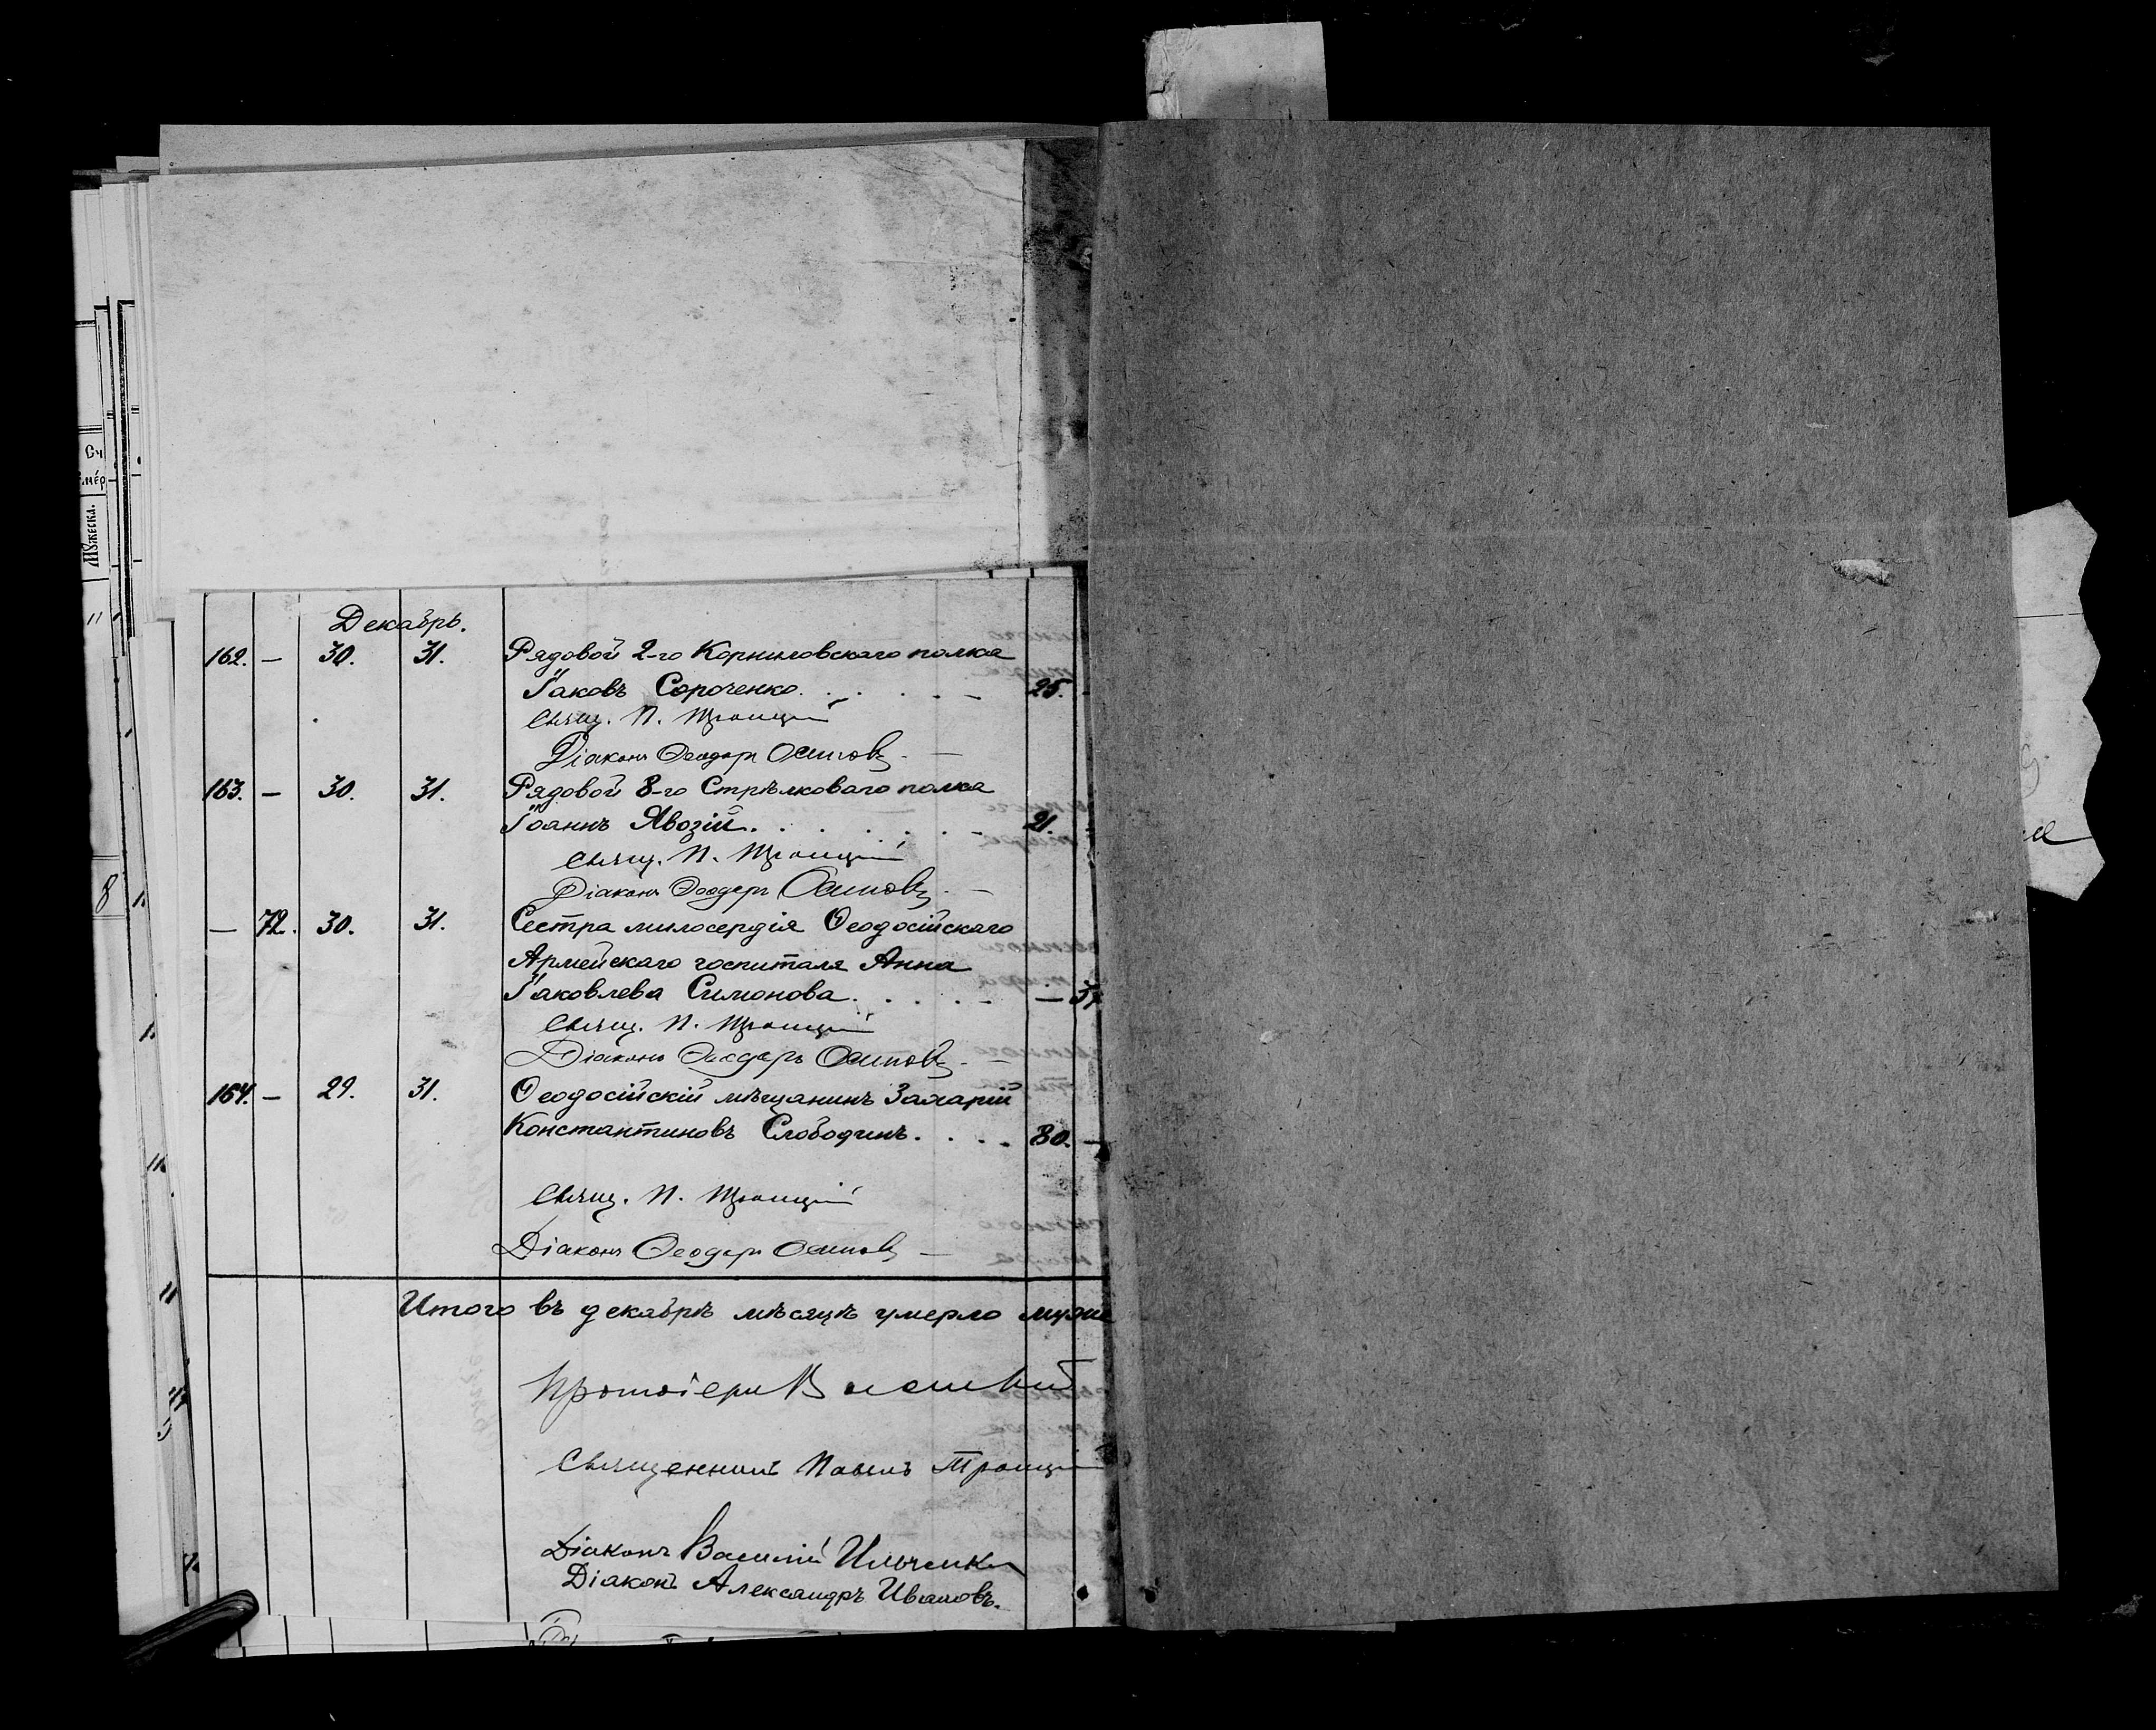 Сч
мер
Мужеска.
11
8
Декабрь.
162. — 30. 31. Рядовой 2-го Корниловскаго полка
Іаковъ Сороченко. 25.
Свящ. П. Троицкій
Діаконъ Ѳеодоръ Осиповъ
163. — 30. 31. Рядовой 8-го Стрѣлковаго полка
Іоаннъ Явозій. 21.
Свящ. П. Троицкій
Діаконъ Ѳеодоръ Осиповъ
— 72. 30. 31. Сестра милосердія Ѳеодосійскаго
Армейскаго госпиталя Анна
Іаковлева Симонова. —
Свящ. П. Троицкій
Діаконъ Ѳеодоръ Осиповъ
164. — 29. 31. Ѳеодосійскій мѣщанинъ Захарій
Константиновъ Слободинъ. 80. —
Свящ. П. Троицкій
Діаконъ Ѳеодоръ Осиповъ
Итого въ декабрѣ мѣсяцѣ умерло муже
Протоіерей
Священникъ Павелъ Троицкій
Діаконъ Василій Ильченко
Діаконъ Александръ Ивановъ.